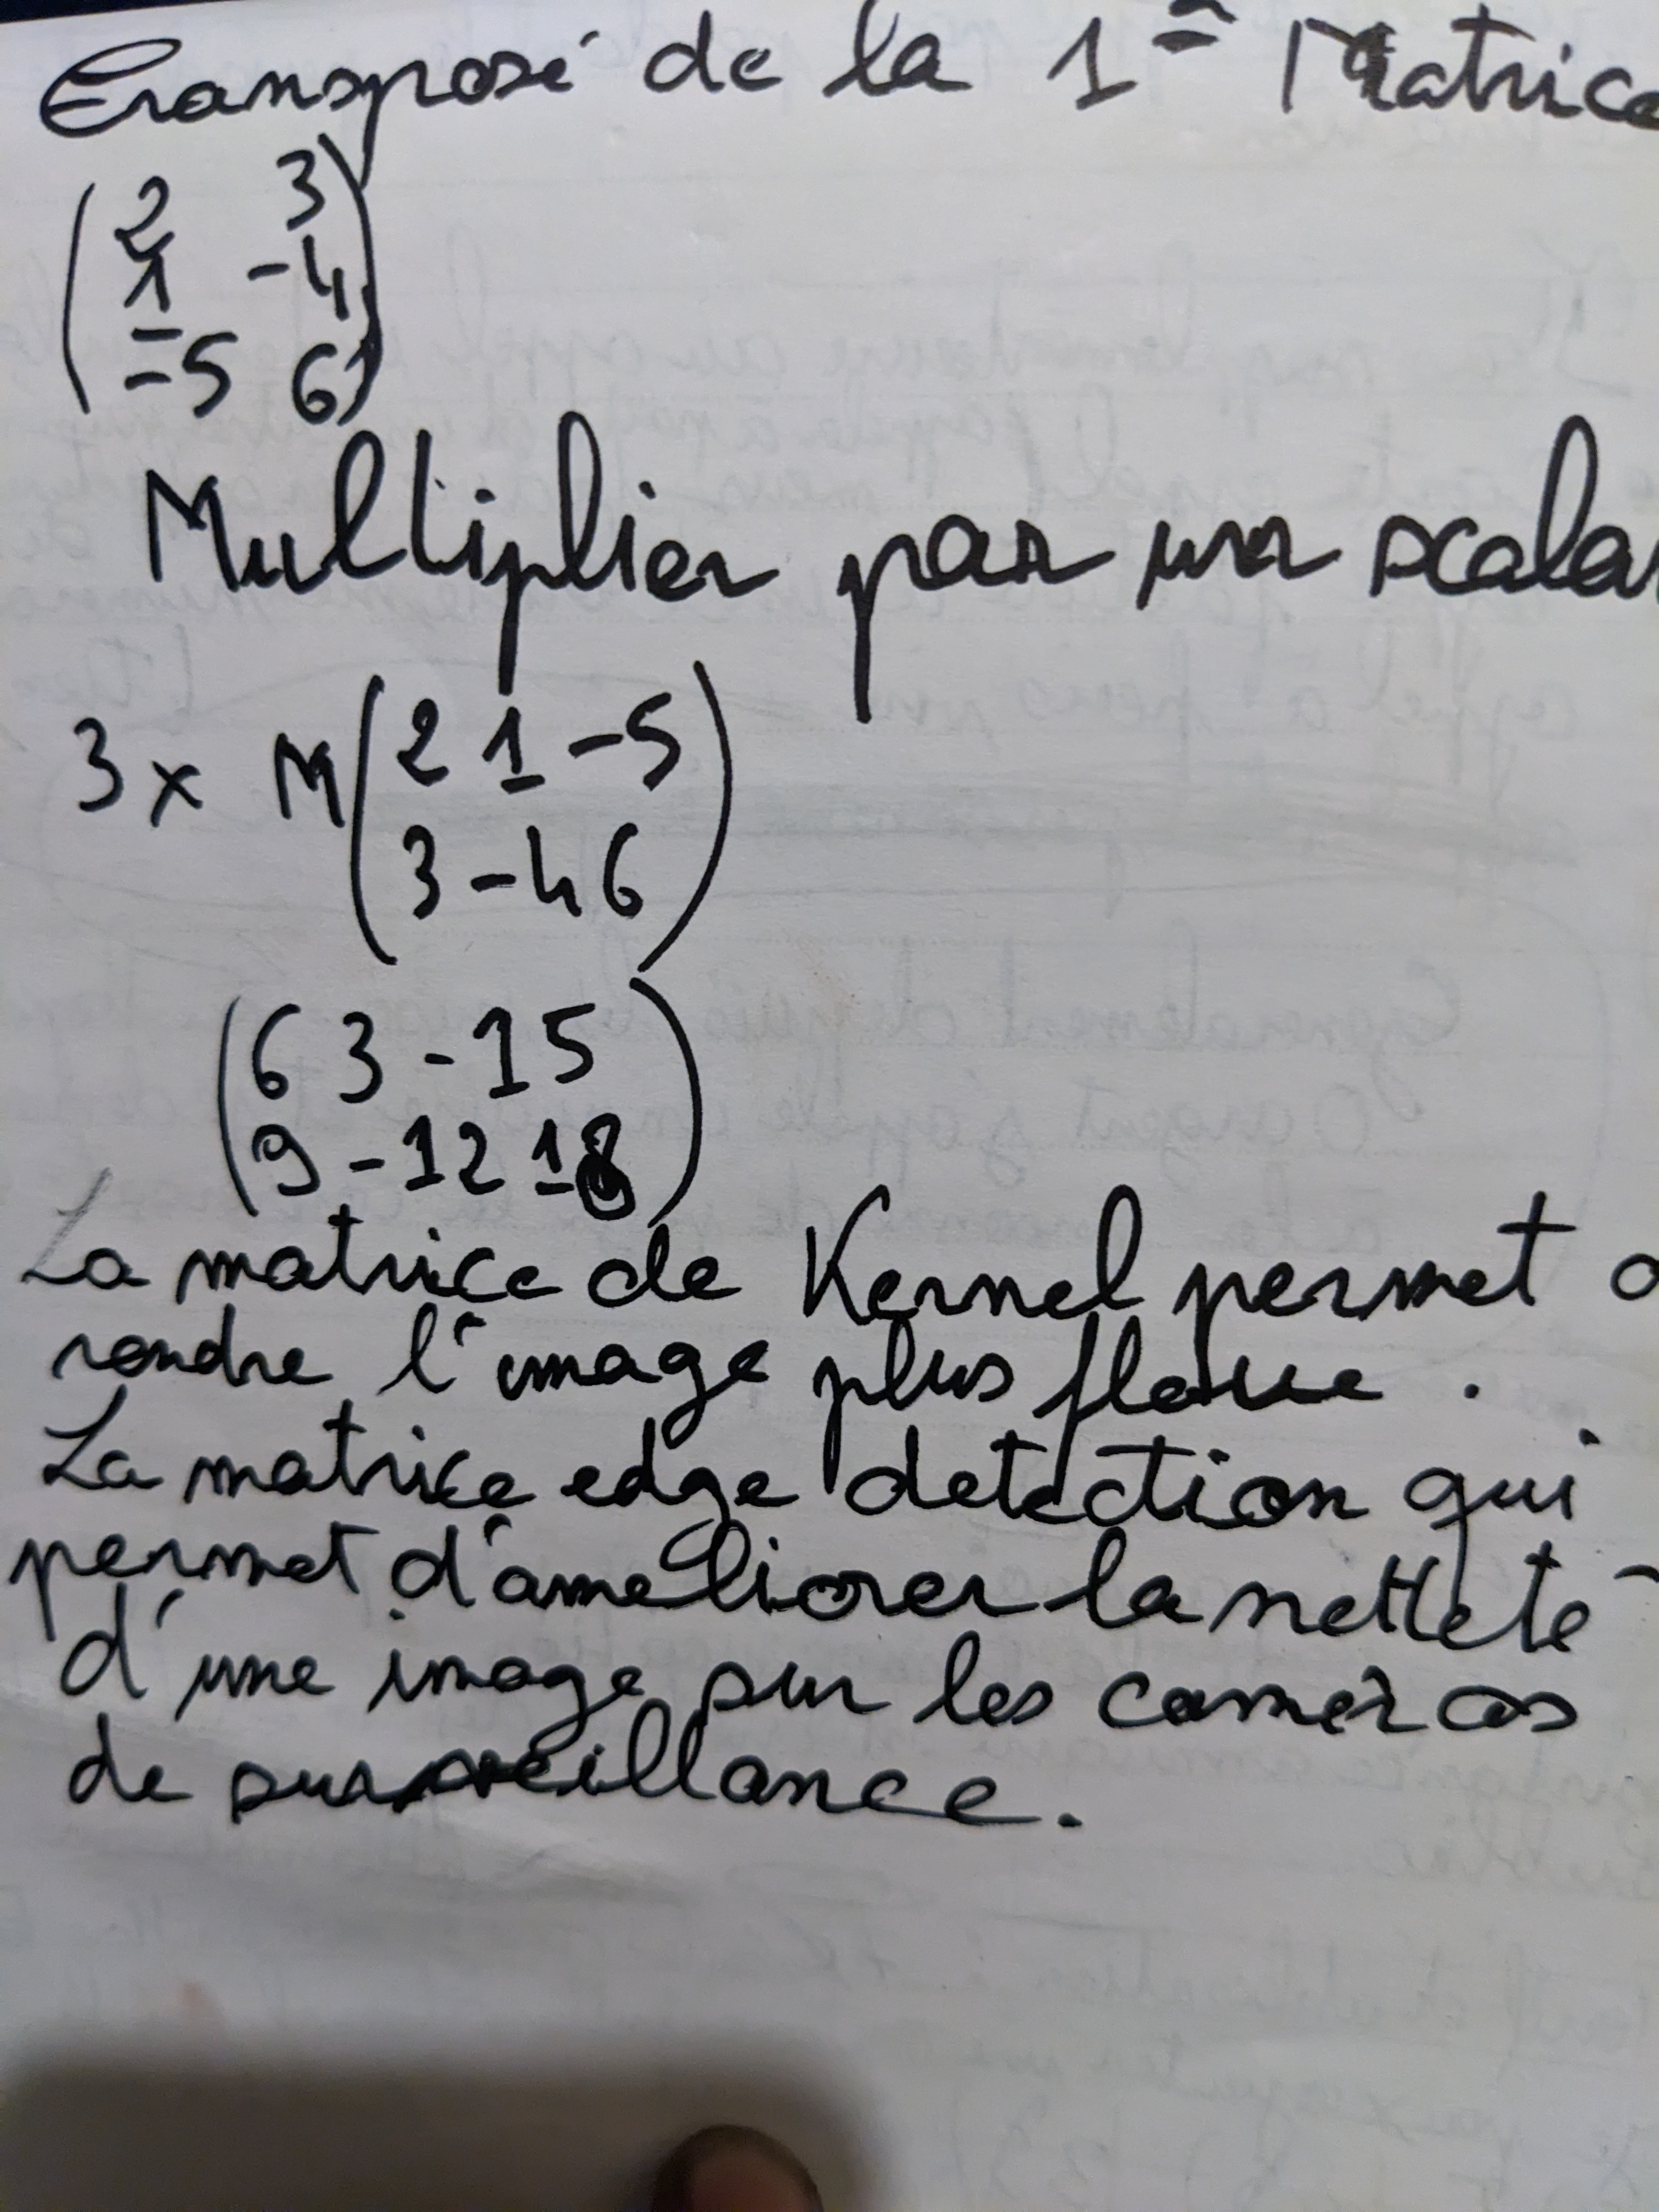 Transposé de la 1= Matrice
2 3
1 -4
-5 6
Multiplier par un scala
3 x M (2 1 -5
3 -4 6)
(6 3 -15
9 -12 18)
La matrice de Kernel permet
rendre l'image plus floue.
La matrice edge detection qui
permet d'améliorer la netteté
d'une image sur les caméras
de surveillance.